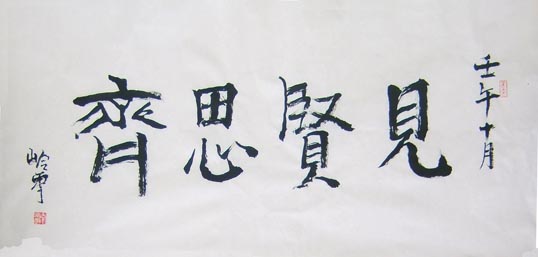 壬午十月
見賢思齊